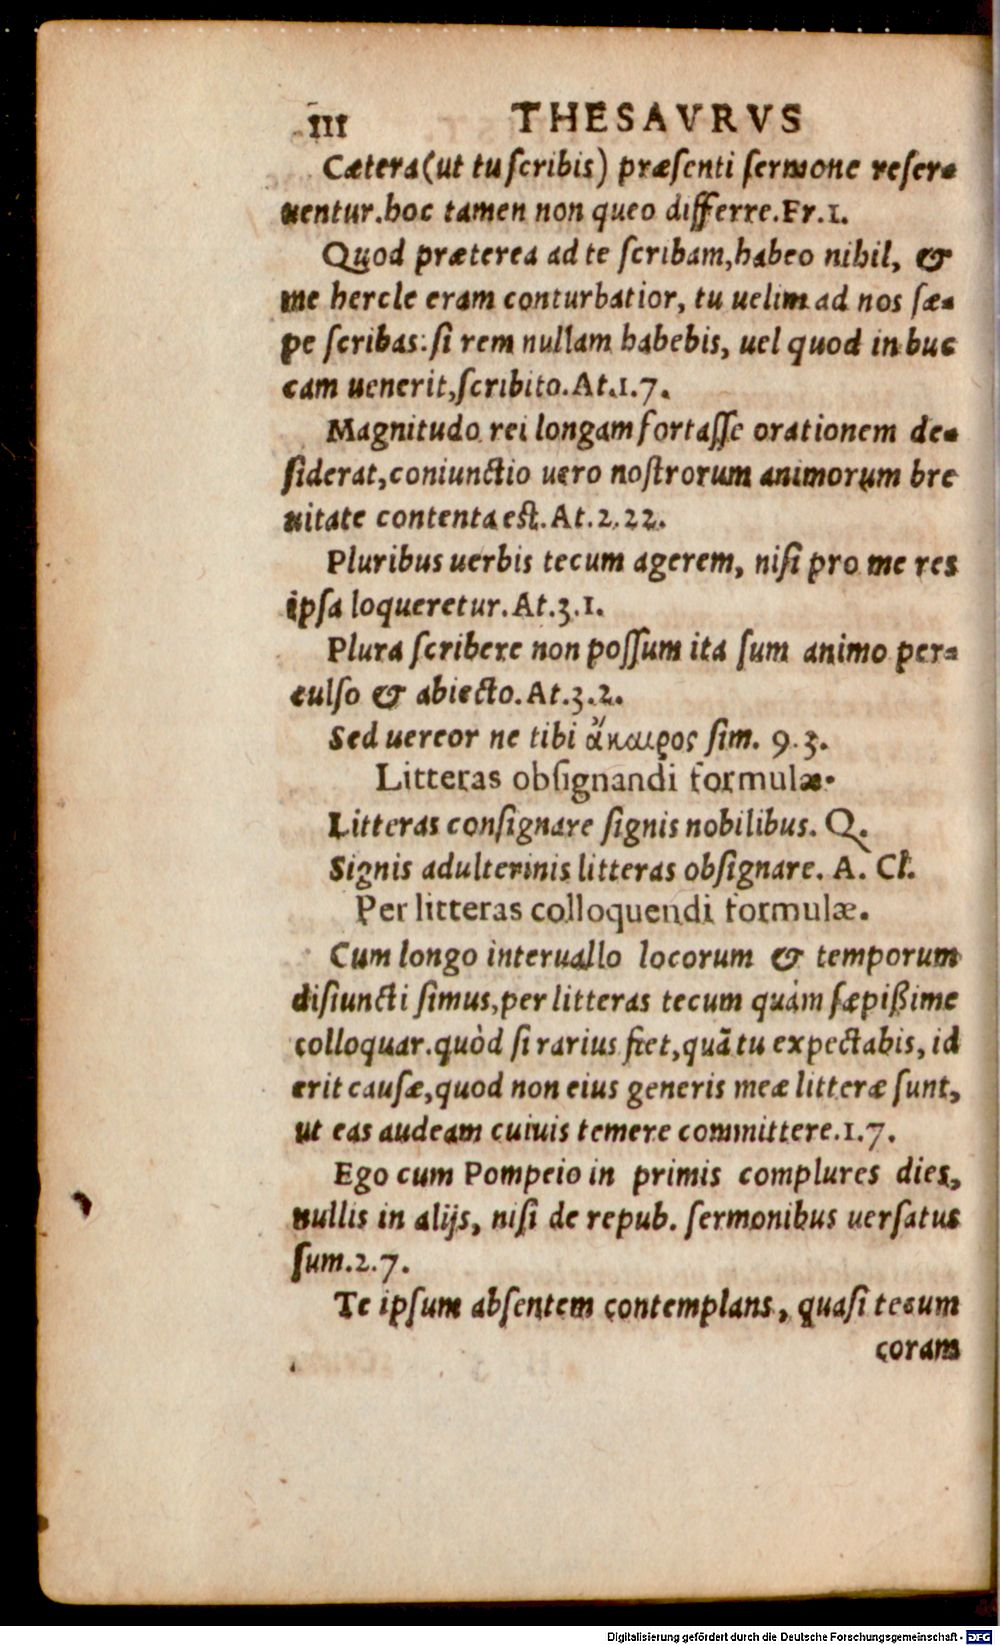 III THESAVRVS
Cætera (ut tu ſcribis) præſenti ſermone reſer-
uentur. hoc tamen non queo differre. Fr. 1.
Quod præterea ad te ſcribam, habeo nihil, &
me hercle eram conturbatior, tu uelim ad nos ſæ-
pe ſcribas: ſi rem nullam habebis, uel quod in buc
cam uenerit, ſcribito. At. 1. 7.
Magnitudo rei longam fortaſſe orationem de-
ſiderat, coniunctio uero noſtrorum animorum bre
uitate contenta eſt. At. 2. 22.
Pluribus uerbis tecum agerem, niſi pro me res
ipſa loqueretur. At. 3. 1.
Plura ſcribere non poſſum ita ſum animo per-
culſo & abiecto. At. 3. 2.
Sed uereor ne tibi ἄκαιρος ſim. 9. 3.
Litteras obſignandi formulæ.
Litteras conſignare ſignis nobilibus. Q.
Signis adulterinis litteras obſignare. A. Cl.
Per litteras colloquendi formulæ.
Cum longo interuallo locorum & temporum
diſiuncti ſimus, per litteras tecum quàm ſæpißime
colloquar. quòd ſi rarius fiet, quã tu expectabis, id
erit cauſæ, quod non eius generis meæ litteræ ſunt,
ut eas audeam cuiuis temere committere. 1. 7.
Ego cum Pompeio in primis complures dies,
nullis in alijs, niſi de repub. ſermonibus uerſatus
ſum. 2. 7.
Te ipſum abſentem contemplans, quaſi tecum
coram
Digitalisierung gefördert durch die Deutsche Forschungsgemeinschaft - DFG